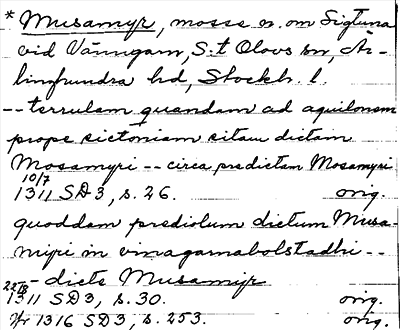 * Musamyr, mosse n. om Sigtuna
vid Vänngarn, S:t Olovs sn, Är-
linghundra hd, Stockh. l.
-- terrulam quandam ad aquilonem
prope sictoniam sitam dictam
Mosamyri -- circa predictam Mosamyri
10/7
1311 SD 3, s. 26. orig.
quoddam prediolum dictum Musa-
miri in vinagarnabolstadhi --
-- dicte Musamir
22/8
1311 SD 3, s. 30. orig.
1316 SD 3, s. 253. orig.